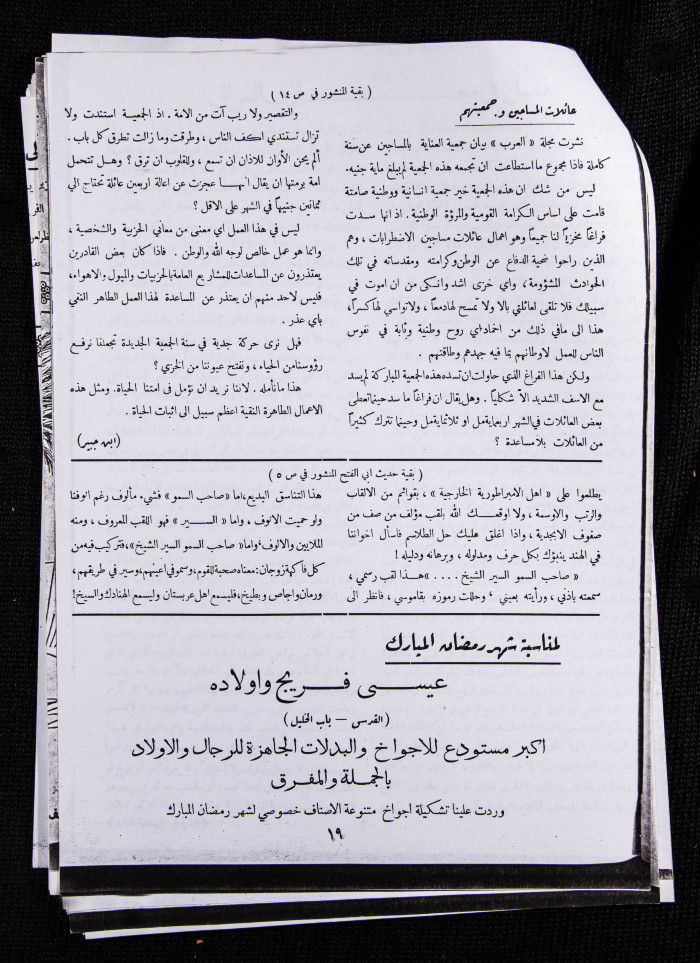 ( بقية المنشور في ص ١٤ )
عائلات المساجين و جمعيتهم
نشرت مجلة « العرب » بيان جمعية العناية بالمساجين عن سنة
كاملة فاذا مجموع ما استطاعت ان تجمعه هذه الجمعية لم يبلغ ماية جنيه.
ليس من شك ان هذه الجمعية خير جمعية انسانية ووطنية صامتة
قامت على اساس الكرامة القومية والمرؤة الوطنية . اذ انها سدت
فراغاً مخزياً لنا جميعاً وهو اهمال عائلات مساجين الاضطرابات ، وهم
الذين راحوا ضحية الدفاع عن الوطن وكرامته ومقدساته في تلك
الحوادث المشؤومة ، واي خزى اشد وانكى من ان اموت في
سبيلك فلا تلقى لعائلتي بالا ولا تمسح لها دمعاً ، ولا تواسي لها كسراً،
هذا الى مافي ذلك من اخماد اي روح وطنية وثابة في نفوس
الناس للعمل لاوطانهم بما فيه جهدهم وطاقتهم .
ولكن هذا الفراغ الذي حاولت ان تسده هذه الجمعية المباركة لم يسد
مع الاسف الشديد الا شكلياً . وهل يقال ان فراغاً ما سد حينما تعطى
بعض العائلات في الشهر اربعماية مل او ثلاثماية مل وحينما تترك كثيراً
من العائلات بلا مساعدة ؟
والتقصير ولا ريب آت من الامة . اذ الجمعية استندت ولا
تزال تستندي اكف الناس ، وطرقت وما زالت تطرق كل باب .
ألم يحن الأوان للاذان ان تسمع ، وللقلوب ان ترق ؟ وهل تتحمل
امة برمتها ان يقال انها عجزت عن اعالة اربعين عائلة تحتاج الي
ثمانين جنيهاً في الشهر على الاقل ؟
ليس في هذا العمل اي معنى من معاني الحزبية والشخصية ،
وانما هو عمل خالص لوجه الله والوطن . فاذا كان بعض القادرين
يعتذرون عن المساعدات للمشاريع العامة بالحزبيات والميول والاهواء،
فليس لاحد منهم ان يعتذر عن المساعدة لهذا العمل الطاهر النقي
باي عذر .
فهل نرى حركة جدية في سنة الجمعية الجديدة تجعلنا نرفع
رؤوسنا من الحياء ، ونفتح عيوننا من الخزي ؟
هذا ما نأمله . لاننا نريد ان نؤمل في امتنا الحياة. ومثل هذه
الاعمال الطاهرة النقية اعظم سبيل الى اثبات الحياة .
(ابن جبير)
( بقية حديث ابي الفتح المنشور في ص ٥ )
يطلعوا على « اهل الامبراطورية الخارجية » ، بقوائم من الالقاب
والرتب والاوسمة ، ولا اوقعك الله بلقب مؤلف من صف من
صفوف الابجدية ، واذا اغلق عليك حل الطلاسم فاسأل اخواننا
في الهند ينبؤك بكل حرف ومدلوله ، وبرهانه ودليله !
« صاحب السمو السير الشيخ . . . . » هذا لقب رسمي ،
سمعته باذني ، ورأيته بعيني ، وحللت رموزه بقاموسي ، فانظر الى
هذا التناسق البديع، اما « صاحب السمو » فشيء مألوف رغم انوفنا
ولو حميت الانوف ، واما « السير » فهو اللقب المعروف ، ومنه
الملايين والالوف، واما « صاحب السمو السير الشيخ »، فتركيب فيه من
كل فاكهة زوجان : معناه صحبة للقوم، وسمو في اعينهم، وسير في طريقهم،
ورمان واجاص وبطيخ، فليسمع اهل عربستان وليسمع الهنادك والسيخ!
لمناسبة شهر رمضان المبارك
عيسى فريج واولاده
(القدس — باب الخليل)
اكبر مستودع للاجواخ والبدلات الجاهزة للرجال والاولاد
بالجملة والمفرق
وردت علينا تشكيلة اجواخ متنوعة الاصناف خصوصي لشهر رمضان المبارك
١٩